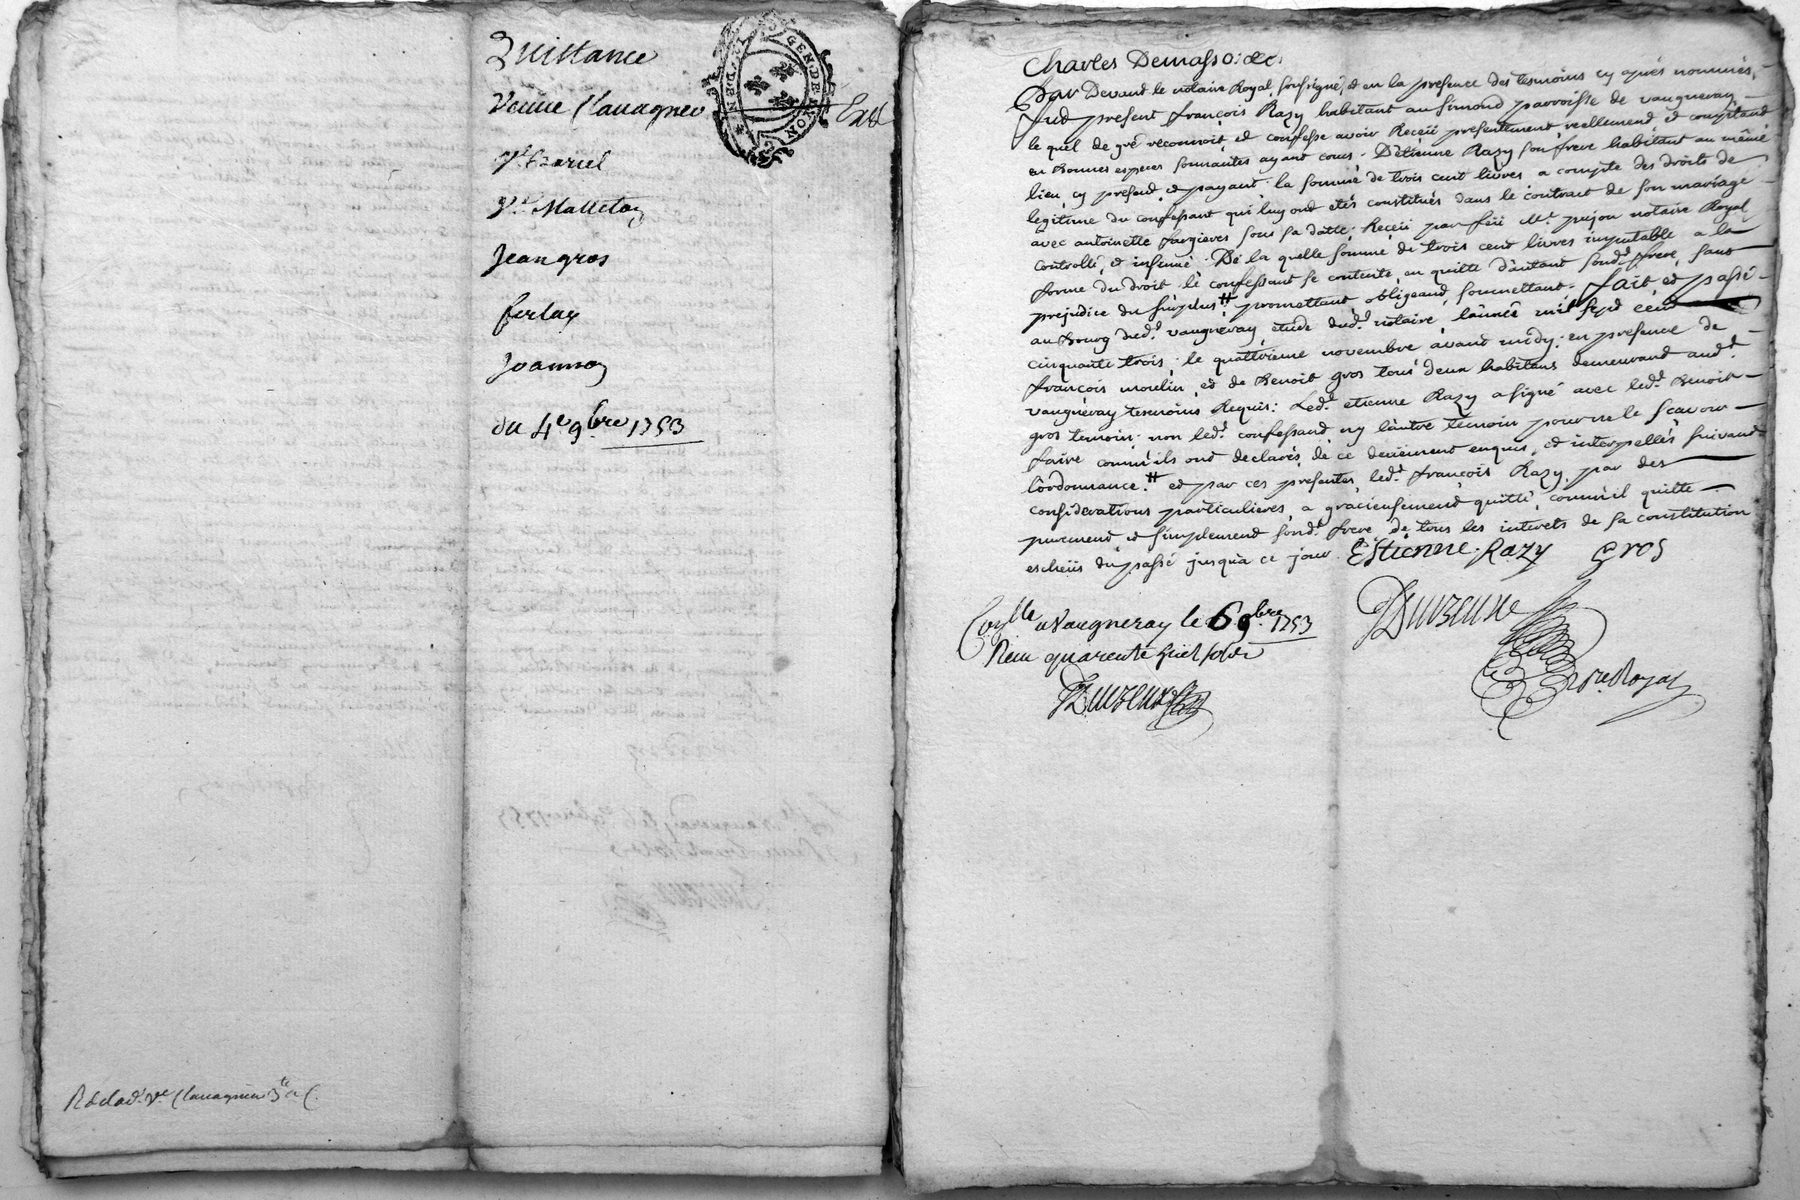 Quittance
Veuve Clavagnier Exd
GEN. DE LYON
Vᵉ
Vᵉ Malleton
Jean gros
ferlay
Joannon
du 4ᵉ 9bre 1753
Vᵉ Clavagnier
Charles Demasso: &c:
Par Devand le notaire Royal soussigné, et en la presence des tesmoins cy aprés nommés,
fud present françois Razy habitant au simond parroisse de vaugneray
le quel de gré reconnoit, et confesse avoir Receü présentement, reellement et comptand
en bonnes especes sonnantes ayant cours. D'étienne Razy son frere habitant au même
lieu, cy présend, et payant. la somme de trois cent livres a compte des droits de
legitime du confessant qui luy ont etés constitués dans le contrat de son mariage
avec antoinette fargieres sous sa datte; Receü par feü Mᵉ. pujon notaire Royal
controllé, et insinué. De la quelle somme de trois cent livres imputable a la
forme du droit. le confessant se contente, en quitte d'autant sond. frere, sans
prejudice du surplus # promettant obligeand, soumettant. fait et passé
au bourg dud. vaugneray, étude dud. notaire, l'année mil sept cent
cinquante trois; le quattrieme novembre avant midy: en présence de
françois moulin, et de Benoit gros tous deux habitans demeurand aud.
vaugneray tesmoins Requis: Led. etienne Razy a signé avec led. Benoit
gros temoin; non led. confessand ny l'autre temoin pour ne le scavoir
faire comm'ils ont declarés, de ce deüement enquis, et interpellés suivand
l'ordonnance. # et par ces presentes, led. françois Razy, par des
considerations particulieres, a gracieusement quitté, comm'il quitte
purement et simplement sond. frere, de tous les interets de sa constitution
escheüs du passé jusqu'a ce jour. Estienne. Razy gros
Conᵗˡˡᵉ a Vaugneray le 6 9bre 1753
Receu quarente huict sols
Duvzeune
Nʳᵉ Royal